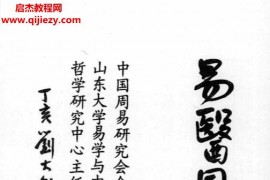 启杰教程网
www.qijiezy.com
易醫
中国周易研究会会
山东大学易学与中
哲学研究中心主任
丁亥劉大